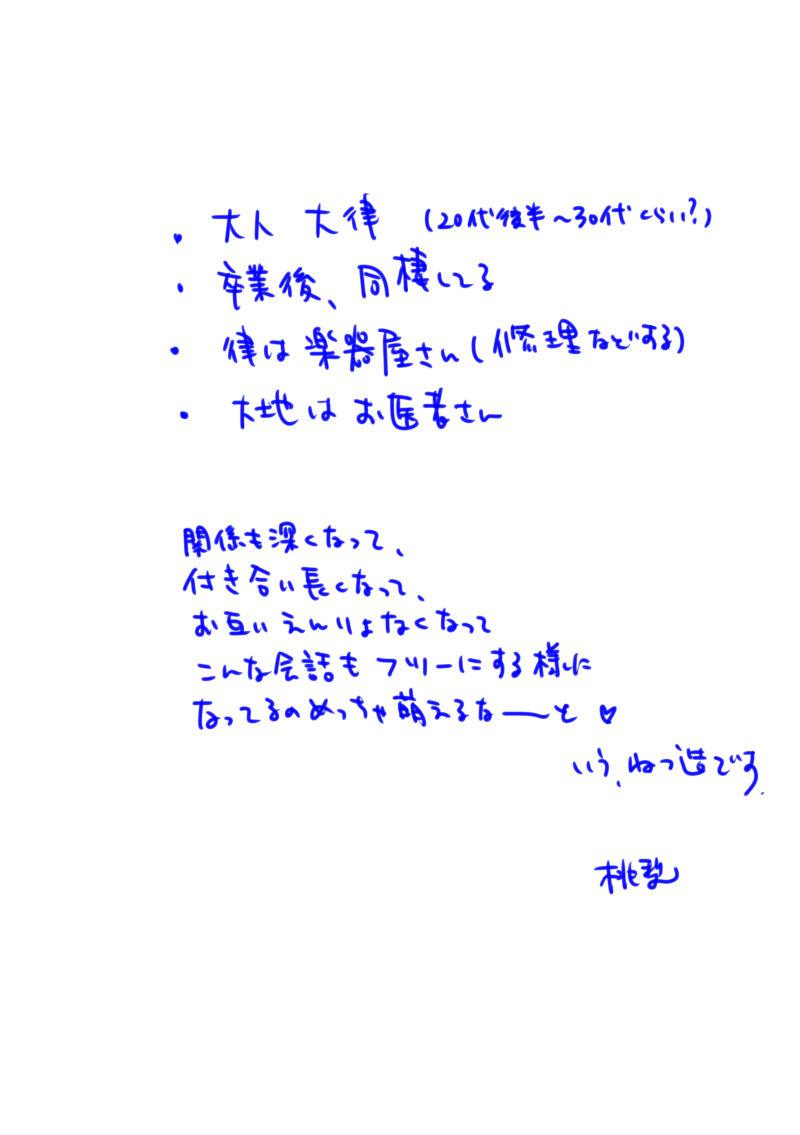 ・ 大人 大律 (20代後半~30代くらい?)
・ 卒業後、同棲してる
・ 律は楽器屋さん(修理などする)
・ 大地はお医者さん
関係も深くなって、
付き合い長くなって、
お互いえんりょなくなって
こんな会話もフツーにする様に
なってるのめっちゃ萌えるなーと♡
いう、ねつ造です.
桃梨